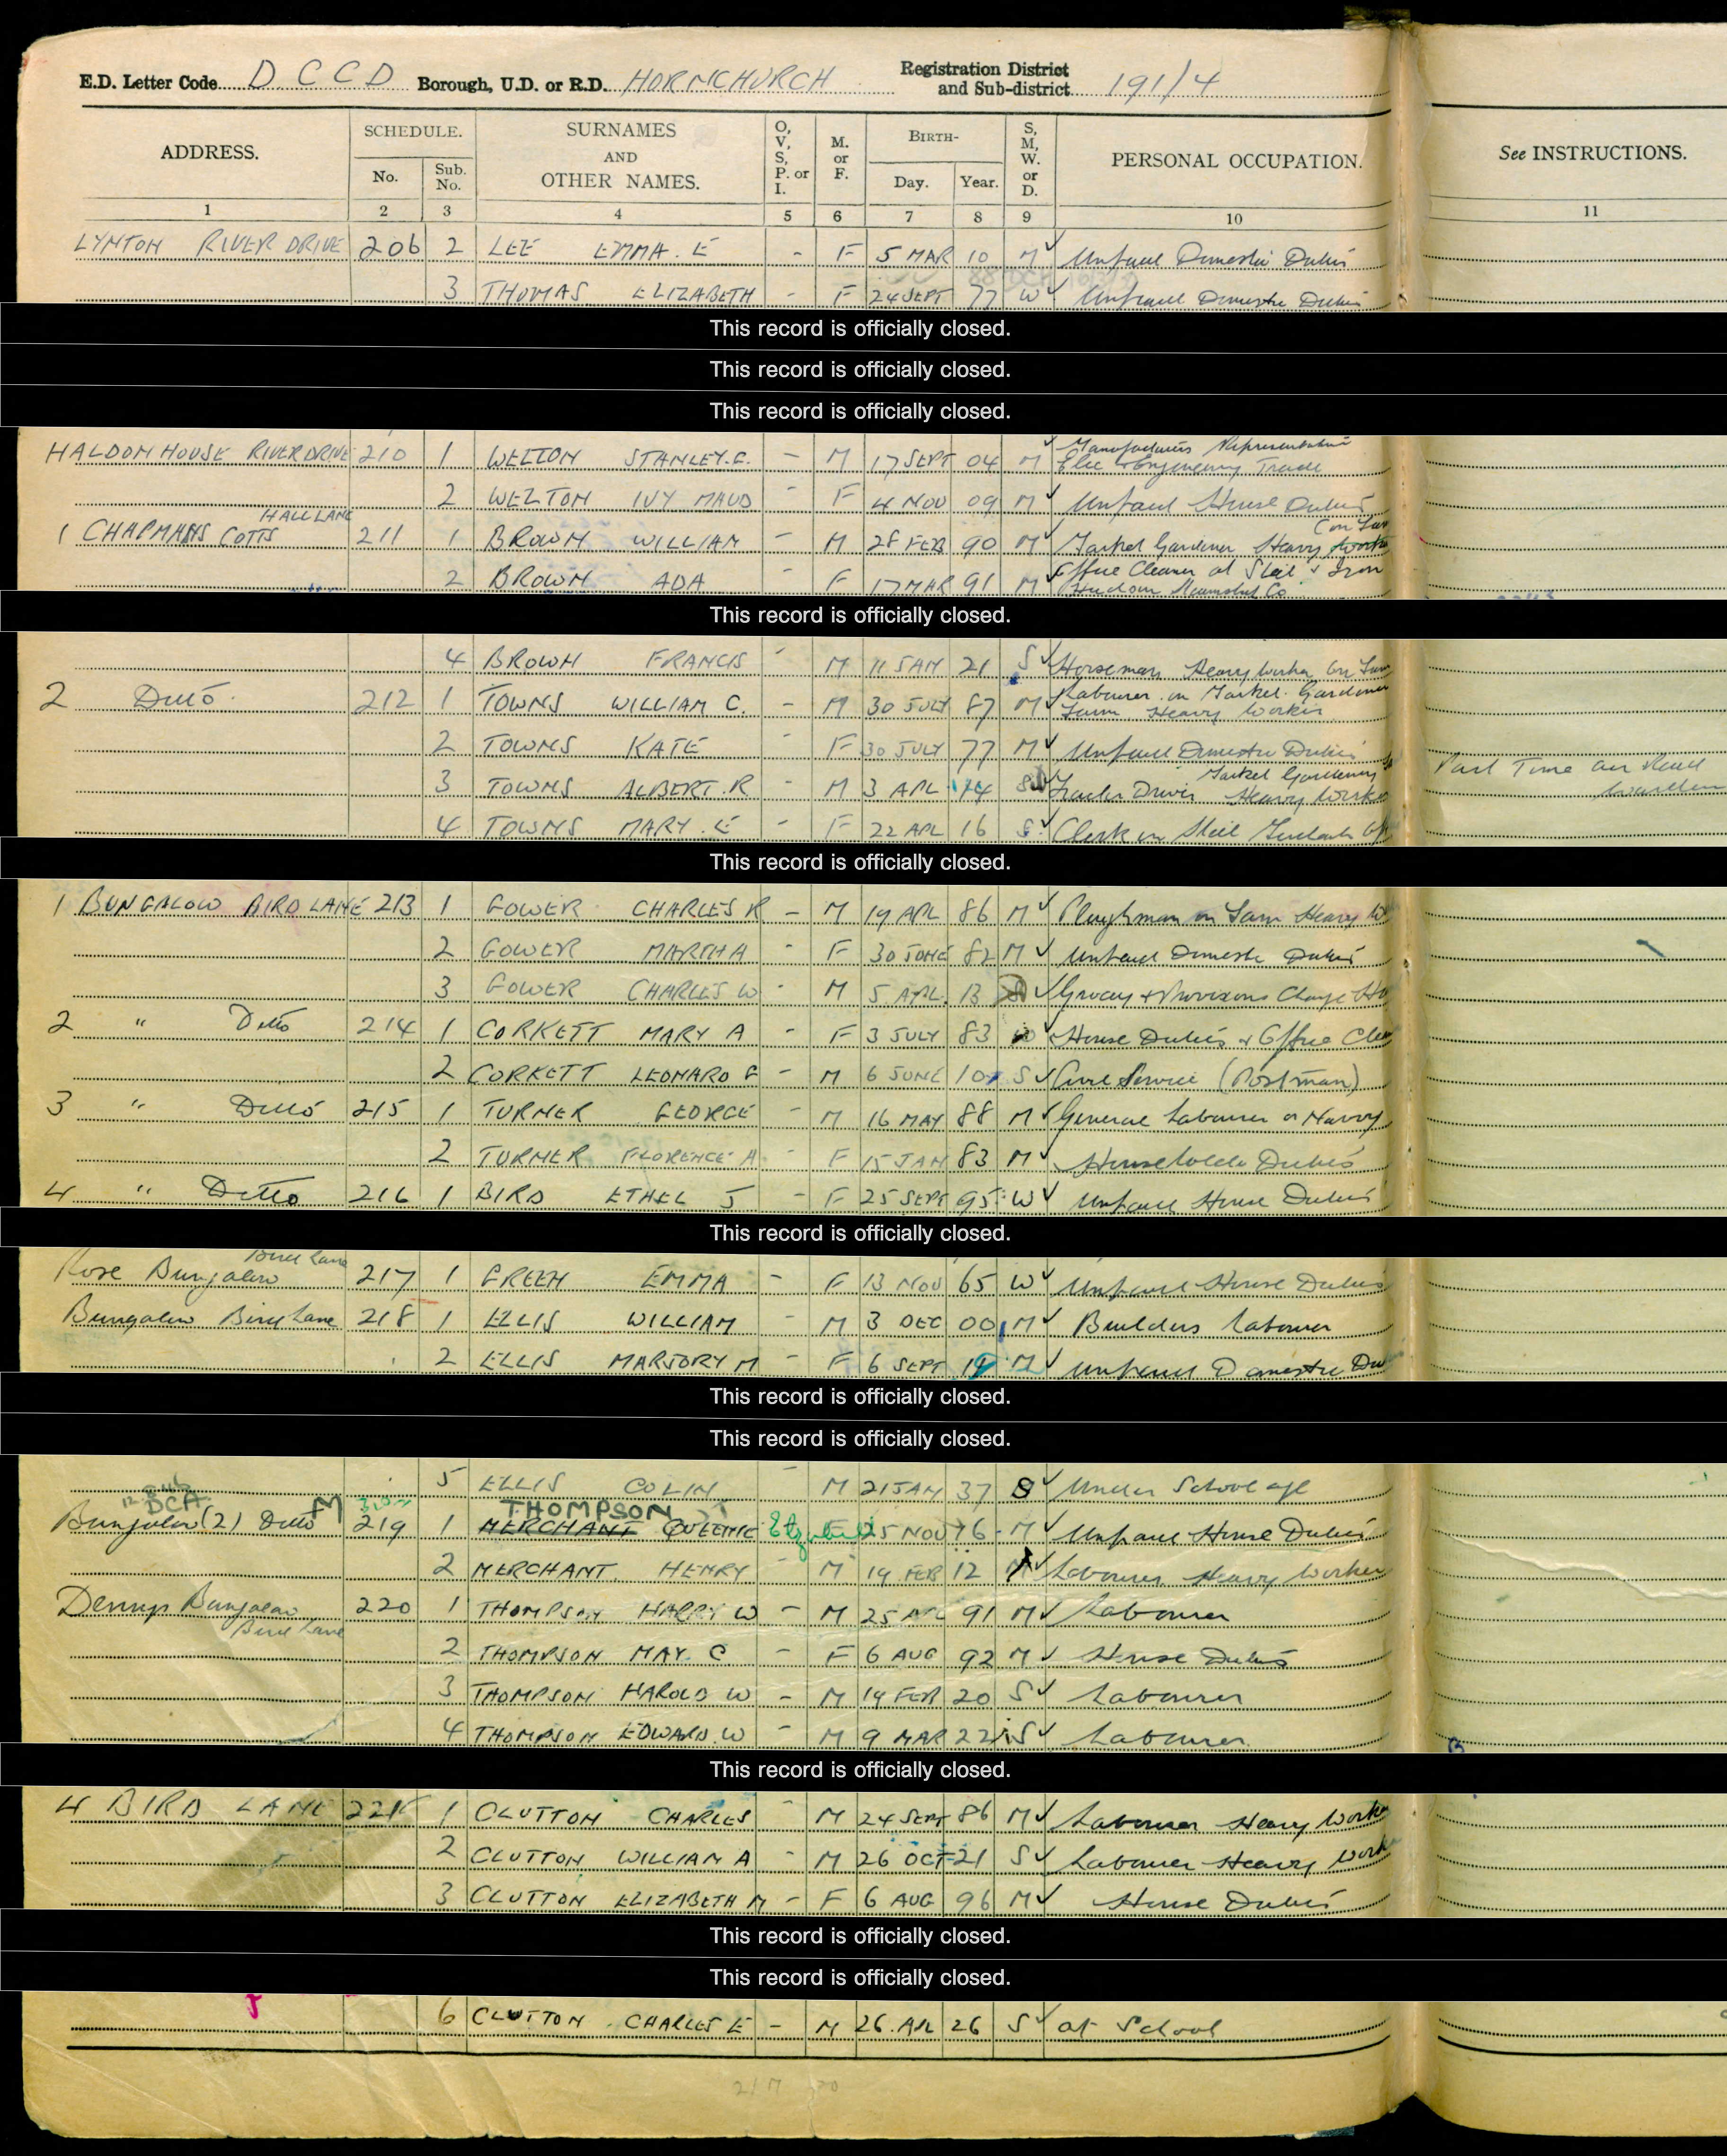 E.D. Letter Code D C C D Borough, U.D. or R.D. HORNCHURCH Registration District and Sub-district 191/4
ADDRESS. SCHEDULE. No. Sub. No. SURNAMES AND OTHER NAMES. O, V, S, P. or I. M. or F. BIRTH- Day. Year. S, M, W. or D. PERSONAL OCCUPATION. See INSTRUCTIONS.
1 2 3 4 5 6 7 8 9 10 11
LYNTON RIVER DRIVE 206 2 LEE EMMA. E - F 5 MAR 10 M Unpaid Domestic Duties
3 THOMAS ELIZABETH - F 24 SEPT 77 W Unpaid Domestic Duties
This record is officially closed.
This record is officially closed.
This record is officially closed.
HALDON HOUSE RIVER DRIVE 210 1 WELTON STANLEY. - M 17 SEPT 04 M Manufacturers Representative
Elec Engineering Trade
2 WELTON IVY MAUD - F 4 NOV 09 M Unpaid House Duties
HALL LANE
1 CHAPMANS COTTS 211 1 BROWN WILLIAM - M 28 FEB 90 M Market Gardener Heavy Worker
2 BROWN ADA - F 17 MAR 91 M Office Cleaner at Steel & Iron
This record is officially closed.
4 BROWN FRANCIS - M 11 JAN 21 S Horseman Heavy Worker on Farm
2 Ditto 212 1 TOWNS WILLIAM C. - M 30 JULY 87 M Labourer on Market Gardener
Farm Heavy Worker
2 TOWNS KATE - F 30 JULY 77 M Unpaid Domestic Duties
3 TOWNS ALBERT. R - M 3 APL 14 Market Gardening
Tractor Driver Heavy Worker Part Time Air Raid Warden
4 TOWNS MARY. E - F 22 APL 16 S Clerk in Steel
This record is officially closed.
1 BUNGALOW BIRD LANE 213 1 GOWER CHARLES R - M 19 APL 86 M Ploughman on Farm Heavy W
2 GOWER MARTHA - F 30 JUNE 82 M Unpaid Domestic Duties
3 GOWER CHARLES W - M 5 APL 13 Grocery & Provisions
2 " Ditto 214 1 CORKETT MARY A - F 3 JULY 83 House Duties & Office Clea
2 CORKETT LEONARD - M 6 JUNE 10 S Civil Service (Postman)
3 " Ditto 215 1 TURNER GEORGE - M 16 MAY 88 M General Labourer or Navvy
2 TURNER FLORENCE A - F 15 JAN 83 M Household Duties
4 " Ditto 216 1 BIRD ETHEL J - F 25 SEPT 95 W Unpaid House Duties
This record is officially closed.
Bird Lane
Rose Bungalow 217 1 GREEN EMMA - F 13 NOV 65 W Unpaid House Duties
Bungalow Bird Lane 218 1 ELLIS WILLIAM - M 3 DEC 00 M Builders Labourer
2 ELLIS MARJORY M - F 6 SEPT M Unpaid Domestic Du
This record is officially closed.
This record is officially closed.
5 ELLIS COLIN - M 21 JAN 37 S Under School age
DCA M THOMPSON
Bungalow (2) Ditto 219 1 MERCHANT QUEENIE Elizabeth F 25 NOV 16 M Unpaid House Duties
2 MERCHANT. HENRY - M 19 FEB 12 Labourer Heavy Worker
Dennys Bungalow 220 1 THOMPSON HARRY W - M 25 APL 91 M Labourer
Bird Lane
2 THOMPSON MAY. C - F 6 AUG 92 M House Duties
3 THOMPSON HAROLD W - M 19 FEB 20 S Labourer
4 THOMPSON EDWARD. W - M 9 MAR 22 S Labourer
This record is officially closed.
4 BIRD LANE 221 1 CLUTTON CHARLES - M 24 SEPT 86 M Labourer Heavy Worker
2 CLUTTON WILLIAM A - M 26 OCT 21 S Labourer Heavy Work
3 CLUTTON ELIZABETH M - F 6 AUG 96 M House Duties
This record is officially closed.
This record is officially closed.
6 CLUTTON CHARLES E - M 26 APL 26 S at School